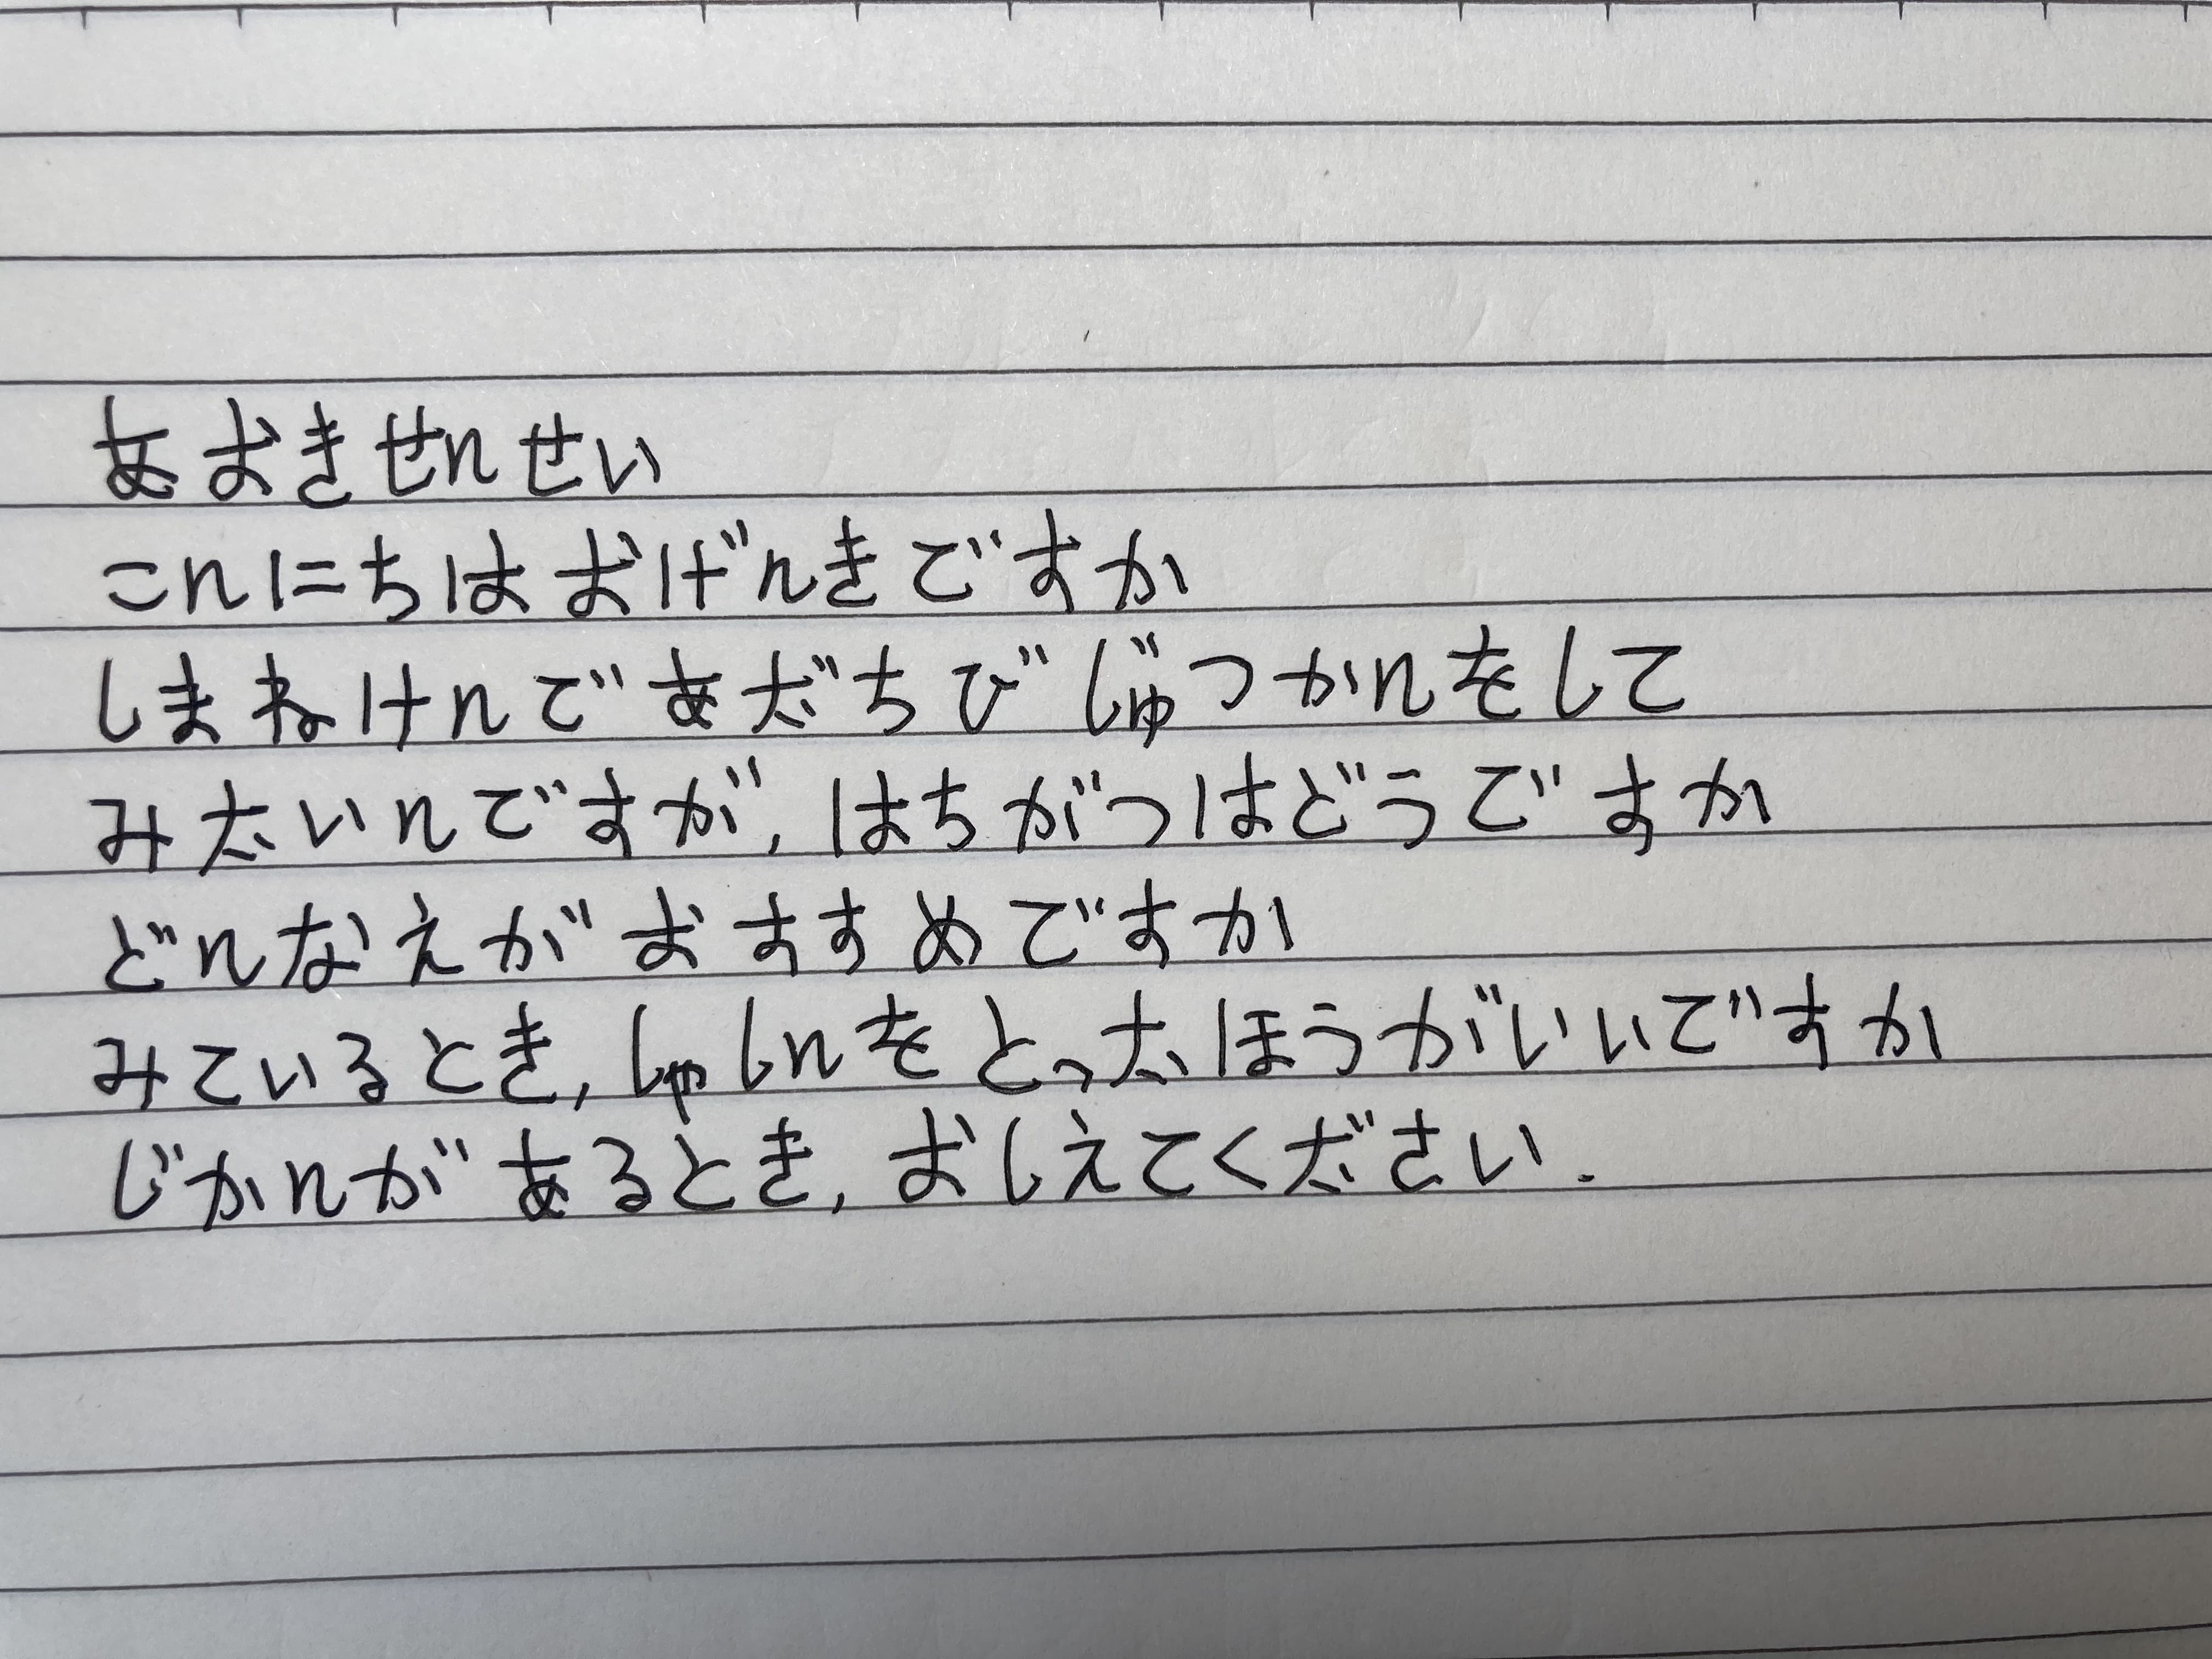 あおきせんせい
こんにちはおげんきですか
しまねけんであだちびじゅつかんをして
みたいんですが,はちがつはどうですか
どんなえがおすすめですか
みているとき,しゃしんをとったほうがいいですか
じかんがあるとき,おしえてください.